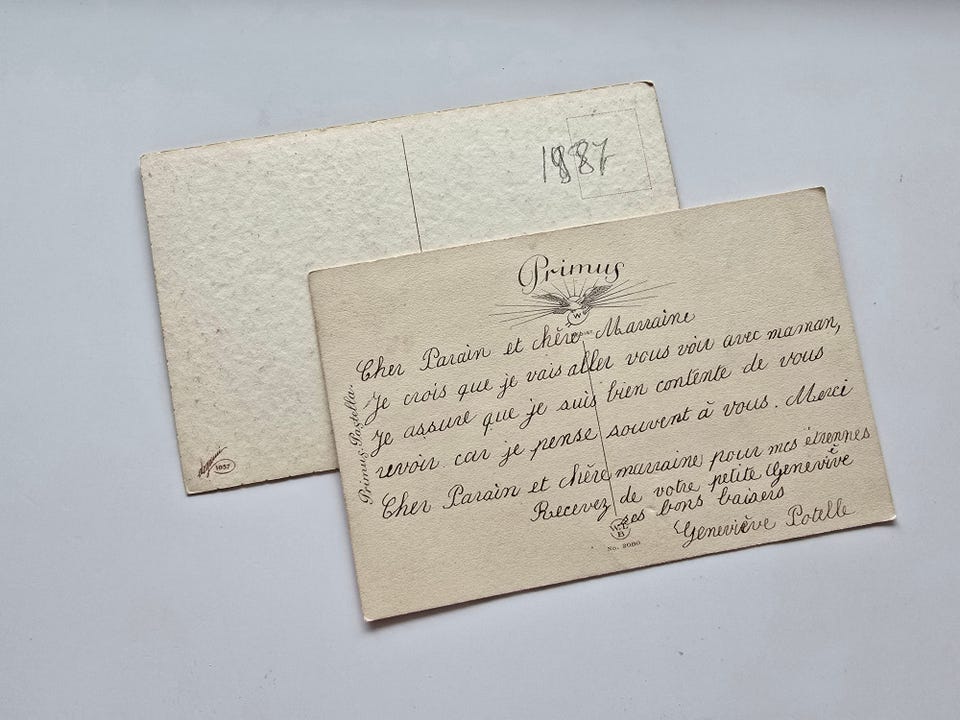 1987
1057
Primus
W
Primus-Pastella.
Cher Parain et chère Marraine
Je crois que je vais aller vous voir avec maman,
Je assure que je suis bien contente de vous
revoir car je pense souvent à vous. Merci
Cher Parain et chère marraine pour mes étrennes
Recevez de votre petite Geneviève
ses bons baisers
Geneviève Potelle
No. 2080